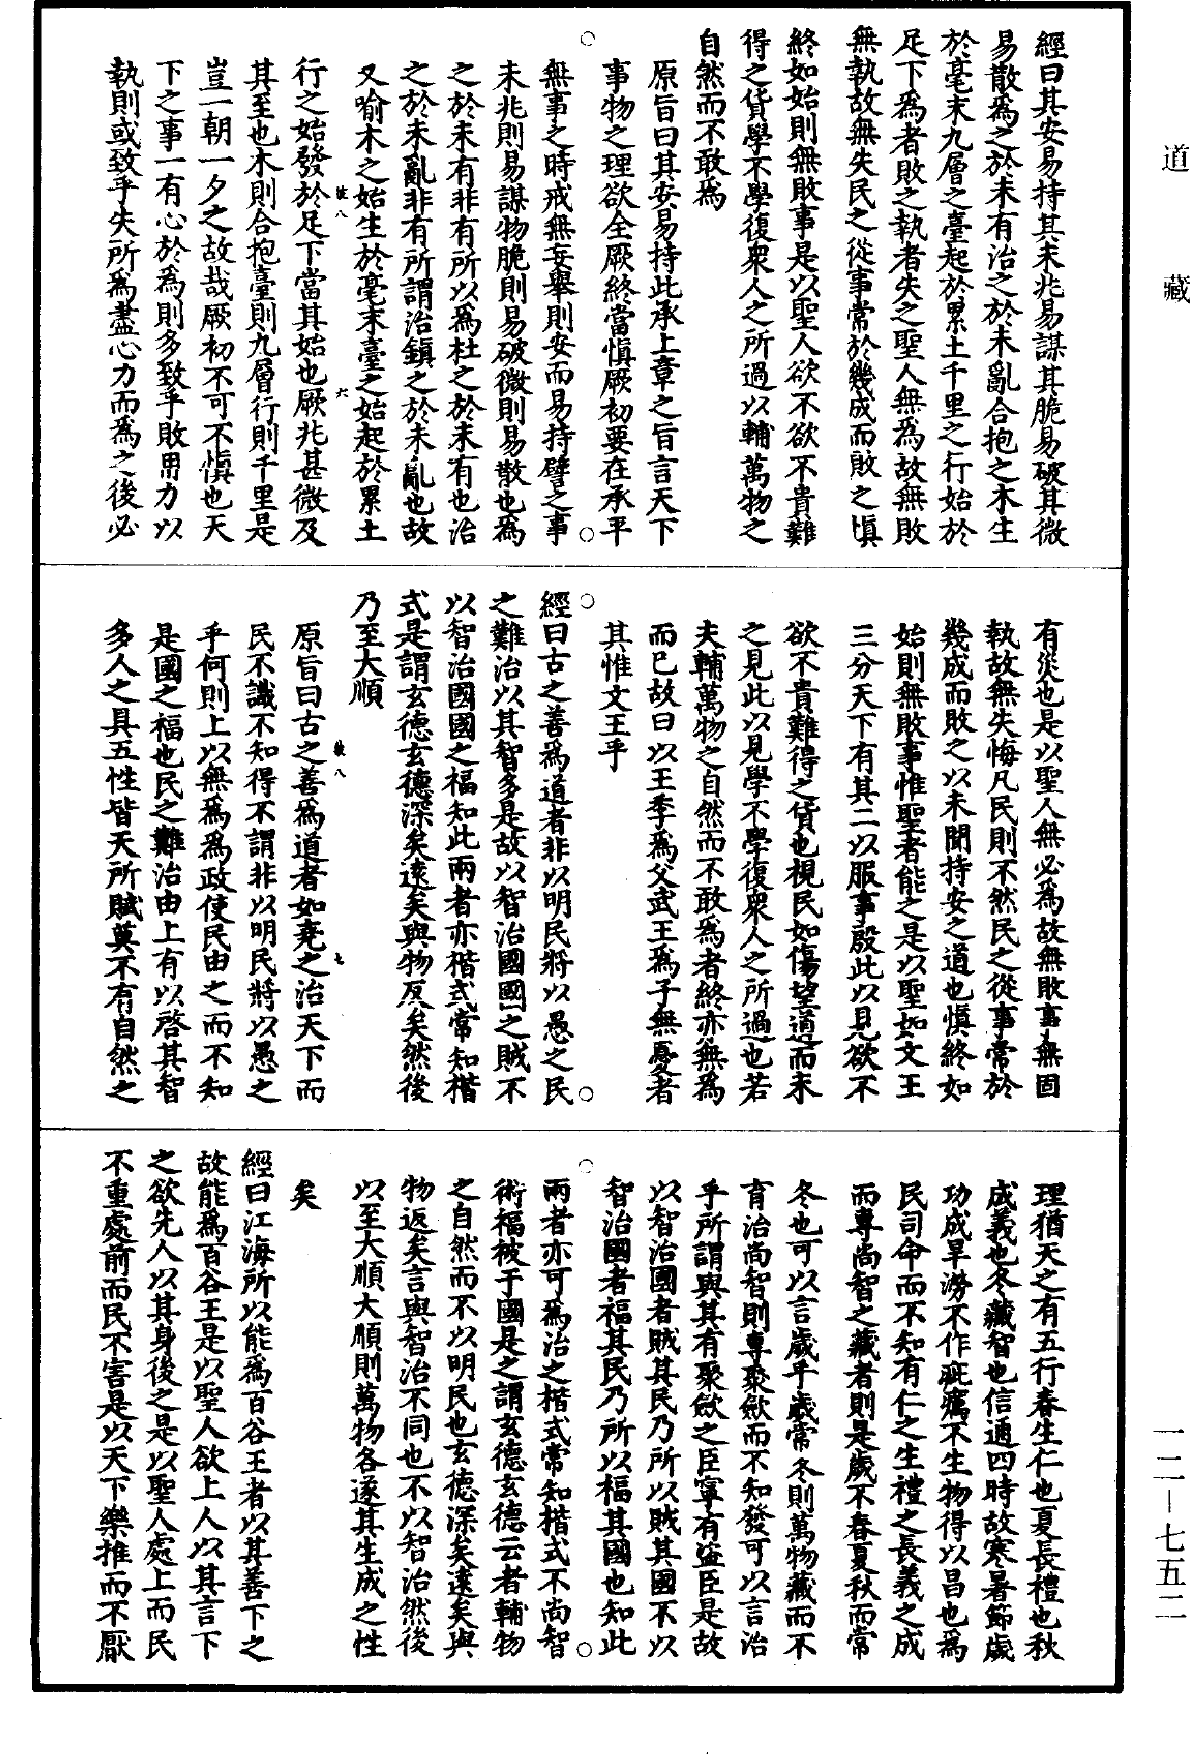 道藏
經曰其安易持其未兆易謀其脆易破其微
易散爲之於未有治之於未亂合抱之木生
於毫末九層之臺起於累土千里之行始於
足下爲者敗之執者失之聖人無爲故無敗
無執故無失民之從事常於幾成而敗之愼
終如始則無敗事是以聖人欲不欲不貴難
得之貨學不學復衆人之所過以輔萬物之
自然而不敢爲
原旨曰其安易持此承上章之旨言天下
事物之理欲全厥終當愼厥初要在承平
無事之時戒無妄舉則安而易持譬之事
未兆則易謀物脆則易破微則易散也爲
之於未有非有所以爲杜之於未有也治
之於未亂非有所謂治鎮之於未亂也故
又喻木之始生於毫末臺之始起於累土
行之始發於足下當其始也厥兆甚微及
其至也木則合抱臺則九層行則千里是
豈一朝一夕之故哉厥初不可不愼也天
下之事一有心於爲則多致乎敗用力以
執則或致乎失所爲盡心力而爲之後必
有災也是以聖人無必爲故無敗事無固
執故無失悔凡民則不然民之從事常於
幾成而敗之以未聞持安之道也愼終如
始則無敗事惟聖者能之是以聖如文王
三分天下有其二以服事殷此以見欲不
欲不貴難得之貨也視民如傷望道而未
之見此以見學不學復衆人之所過也若
夫輔萬物之自然而不敢爲者終亦無爲
而已故曰以王季爲父武王爲子無憂者
其惟文王乎
經曰古之善爲道者非以明民將以愚之民
之難治以其智多是故以智治國國之賊不
以智治國國之福知此兩者亦楷式常知楷
式是謂玄德玄德深矣遠矣與物反矣然後
乃至大順
原旨曰古之善爲道者如堯之治天下而
民不識不知得不謂非以明民將以愚之
乎何則上以無爲爲政使民由之而不知
是國之福也民之難治由上有以啓其智
多人之具五性皆天所賦莫不有自然之
理猶天之有五行春生仁也夏長禮也秋
成義也冬藏智也信通四時故寒暑節歲
功成旱澇不作疵癘不生物得以昌也爲
民司命而不知有仁之生禮之長義之成
而專尚智之藏者則是歲不春夏秋而常
冬也可以言歲乎歲常冬則萬物藏而不
育治尚智則專聚斂而不知發可以言治
乎所謂與其有聚斂之臣寧有盜臣是故
以智治國者賊其民乃所以賊其國不以
智治國者福其民乃所以福其國也知此
兩者亦可爲治之楷式常知楷式不尚智
術福被于國是之謂玄德玄德云者輔物
之自然而不以明民也玄德深矣遠矣與
物返矣言與智治不同也不以智治然後
以至大順大順則萬物各遂其生成之性
矣
經曰江海所以能爲百谷王者以其善下之
故能爲百谷王是以聖人欲上人以其言下
之欲先人以其身後之是以聖人處上而民
不重處前而民不害是以天下樂推而不厭
一二—七五二